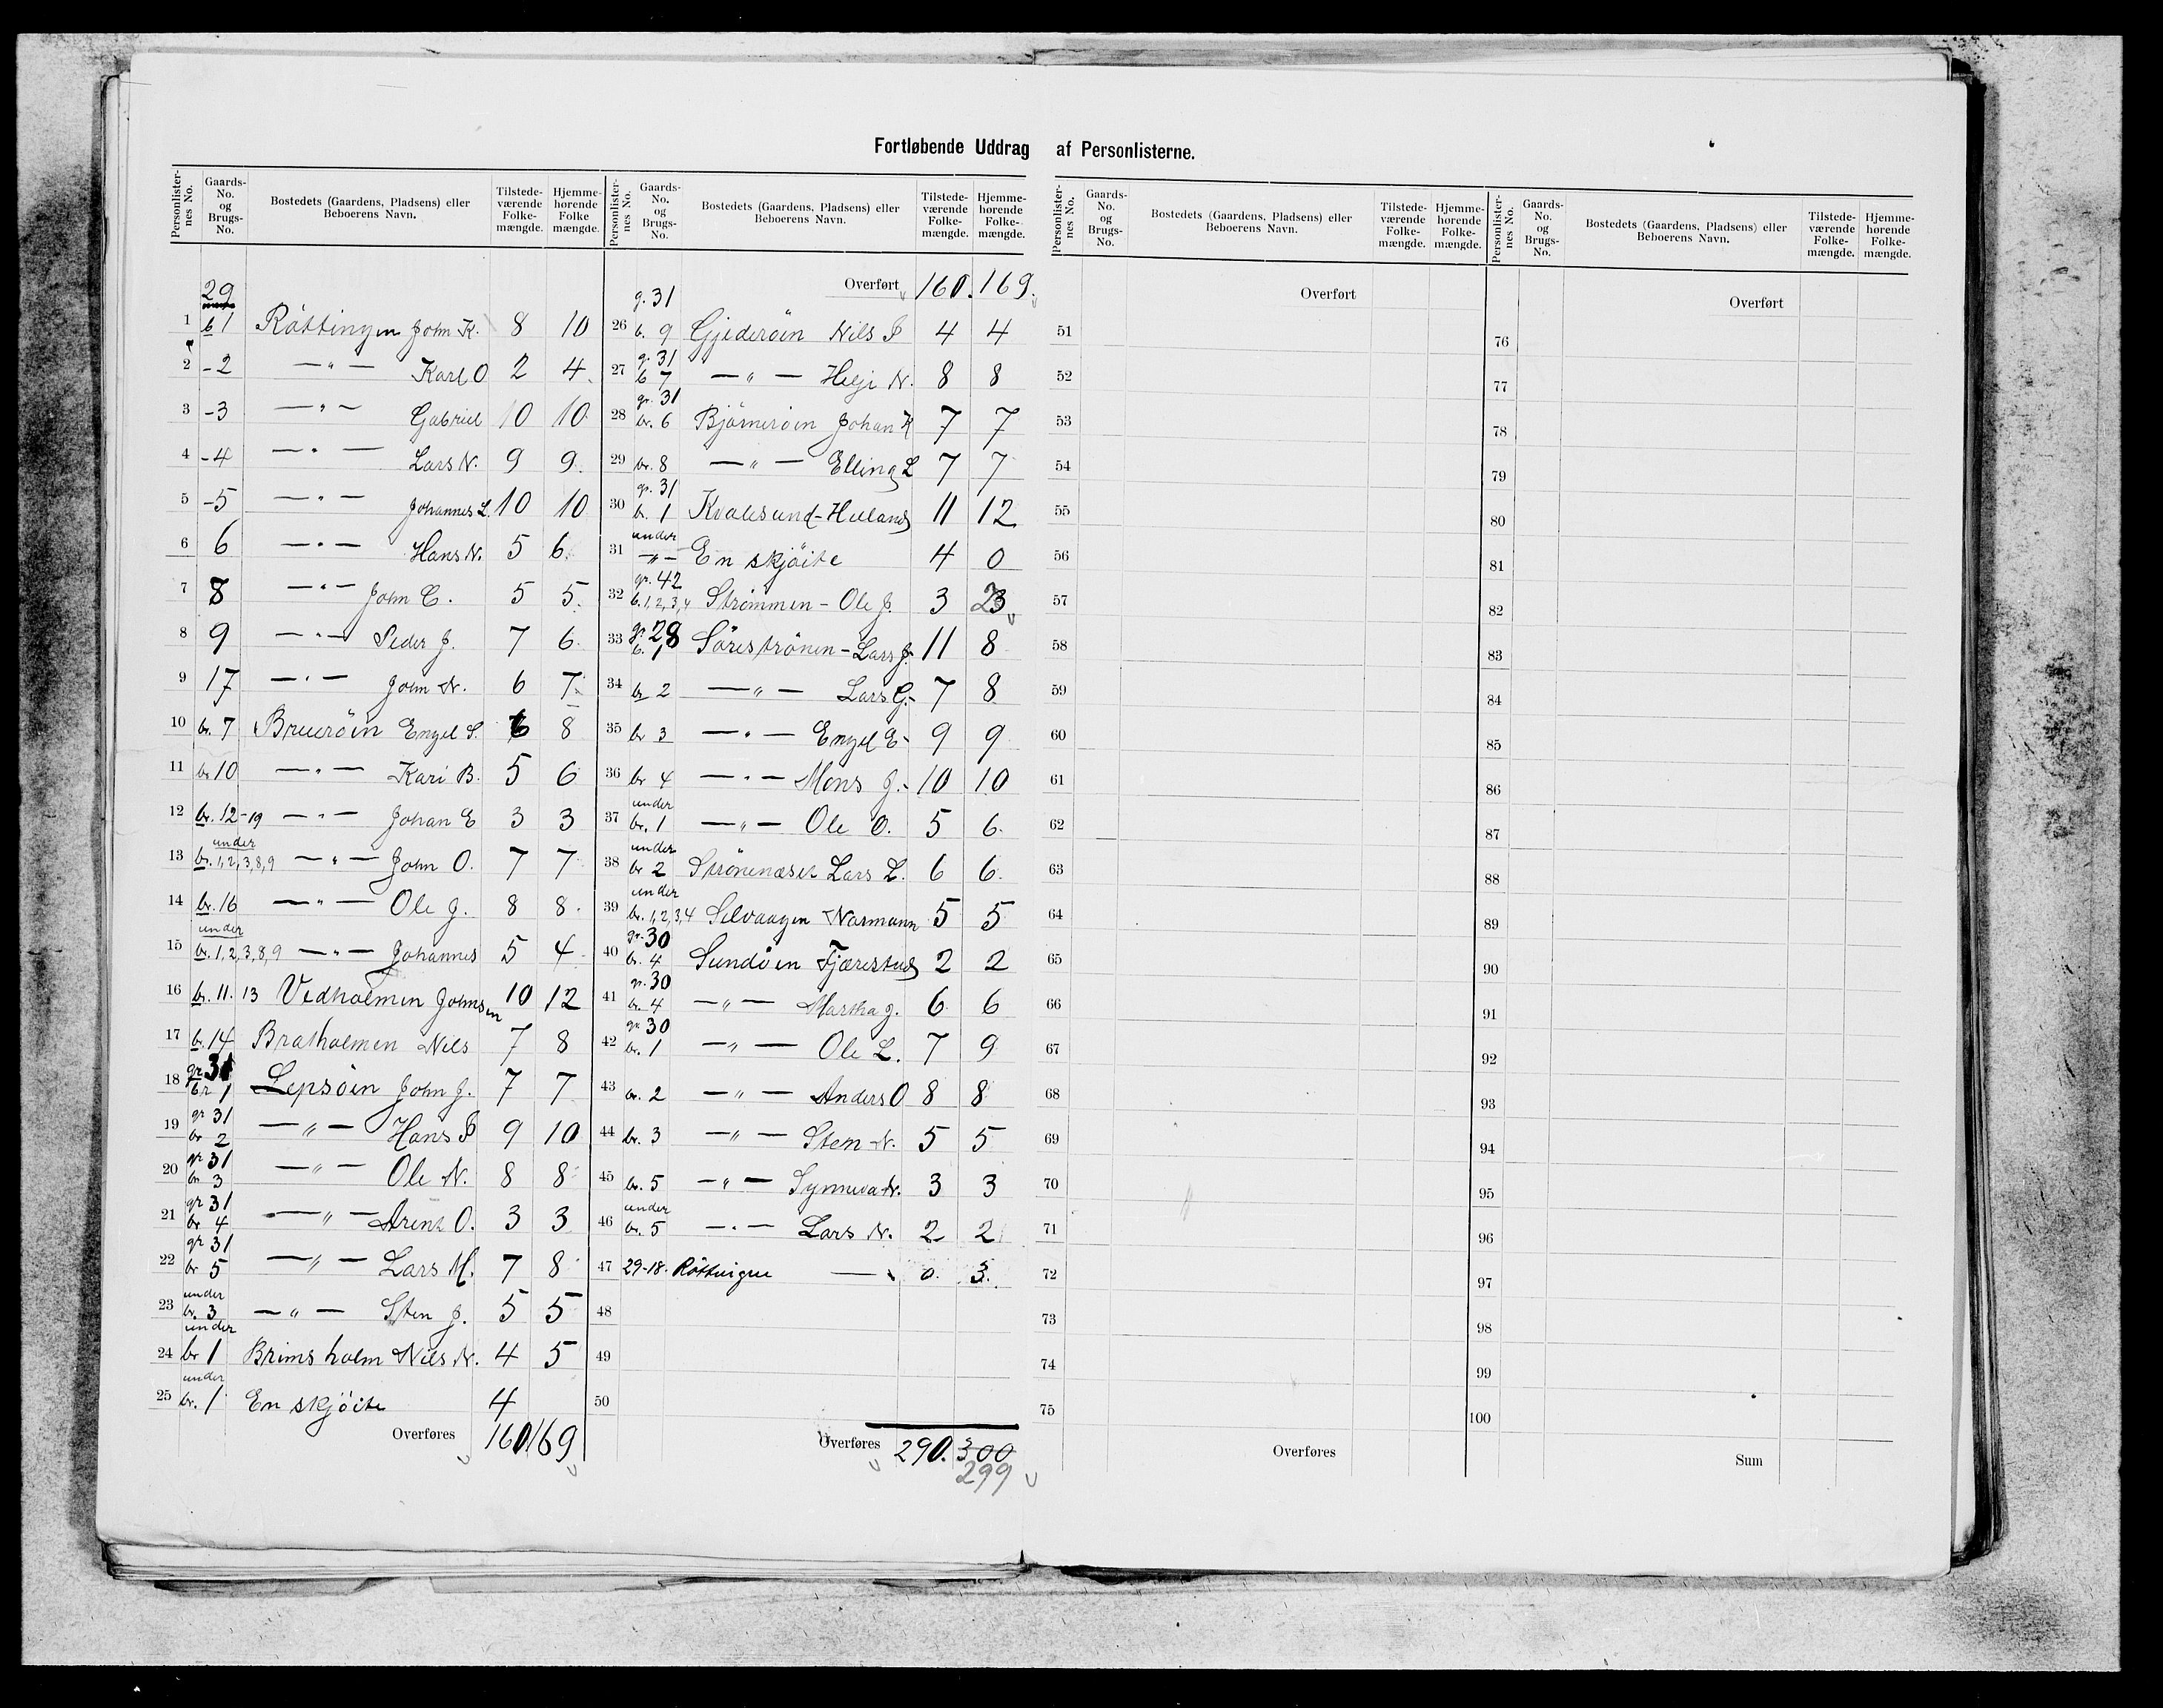 Fortløbende Uddrag af Personlisterne.
Personlister-nes No. Gaards-No. og Brugs-No. Bostedets (Gaardens, Pladsens) eller Beboerens Navn. Tilstede-værende Folke-mængde. Hjemme-hørende Folke mængde.
29
1 b 1 Röttingen John K. 8 10
2 -2 —"— Karl O 2 4
3 -3 —"— Gabriel 10 10
4 -4 —"— Lars N. 9 9
5 -5 —"— Johannes L. 10 10
6 6 —"— Hans N. 5 6
7 8 —"— John C. 5 5
8 9 —"— Peder J. 7 6
9 17 —"— John N. 6 7
10 br. 7 Brueröin Engel S. 6 8
11 br 10 —"— Kari B. 5 6
12 br. 12-19 —"— Johan E 3 3
under
13 br. 1,2,3,8,9 —"— John O. 7 7
14 br. 16 —"— Ole J. 8 8
under
15 br. 1,2,3,8,9 —"— Johannes 5 4
16 br. 11. 13 Vedholmen Johnsen 10 12
17 b. 14 Bratholmen Nils 7 8
gr 31
18 br 1 Lepsöin John J. 7 7
gr 31
19 br 2 —"— Hans P 9 10
gr 31
20 br 3 —"— Ole N. 8 8
gr 31
21 br 4 —"— Arent O. 3 3
gr 31
22 br 5 —"— Lars M. 7 8
under
23 br. 3 —"— Sten J. 5 5
under
24 br 1 Brimsholm Nils N. 4 5
under
25 br. 1 En skjöite 4
Overføres 160 169
Personlister-nes No. Gaards-No. og Brugs-No. Bostedets (Gaardens, Pladsens) eller Beboerens Navn. Tilstede-værende Folke-mængde. Hjemme-hørende Folke-mængde.
Overført 160. 169.
g. 31
26 b. 9 Gjederöin Nils P 4 4
gr. 31
27 b 7 —"— Helje N. 8 8
gr. 31
28 br. 6 Björneröin Johan K 7 7
29 br. 8 —"— Elling L 7 7
gr. 31
30 br. 1 Kvalesund-Helland 11 12
under
31 —"— En skjöite 4 0
gr. 42
32 b. 1,2,3,4 Strömmen - Ole J. 3 3
gr. 28
33 b. 1 Söreströnen - Lars J. 11 8
34 br 2 —"— Lars G. 7 8
35 br 3 —"— Engel E 9 9
36 br 4 —"— Mons J. 10 10
under
37 br. 1 —"— Ole O. 5 6
under
38 br 2 Strönenæset Lars L. 6 6
under
39 br. 1,2,3,4 Selvaagen Narmann 5 5
gr. 30
40 br. 4 Sundöen Fjærestad 2 2
gr. 30
41 br. 4 —"— Martha J. 6 6
gr 30
42 br. 1 —"— Ole L. 7 9
43 br. 2 —"— Anders O 8 8
44 br. 3 —"— Sten N. 5 5
45 br. 5 —"— Synneva N. 3 3
under
46 br. 5 —"— Lars N. 2 2
47 29-18. Röttingen — 0. 3.
48
49
50
Overføres 290. 300
299
Personlister-nes No. Gaards-No. og Brugs-No. Bostedets (Gaardens, Pladsens) eller Beboerens Navn. Tilstede-værende Folke-mængde. Hjemme-hørende Folke-mængde.
Overført
51
52
53
54
55
56
57
58
59
60
61
62
63
64
65
66
67
68
69
70
71
72
73
74
75
Overføres
Personlister-nes No. Gaards-No. og Brugs-No. Bostedets (Gaardens, Pladsens) eller Beboerens Navn. Tilstede-værende Folke-mængde. Hjemme-hørende Folke-mængde.
Overført
76
77
78
79
80
81
82
83
84
85
86
87
88
89
90
91
92
93
94
95
96
97
98
99
100
Sum